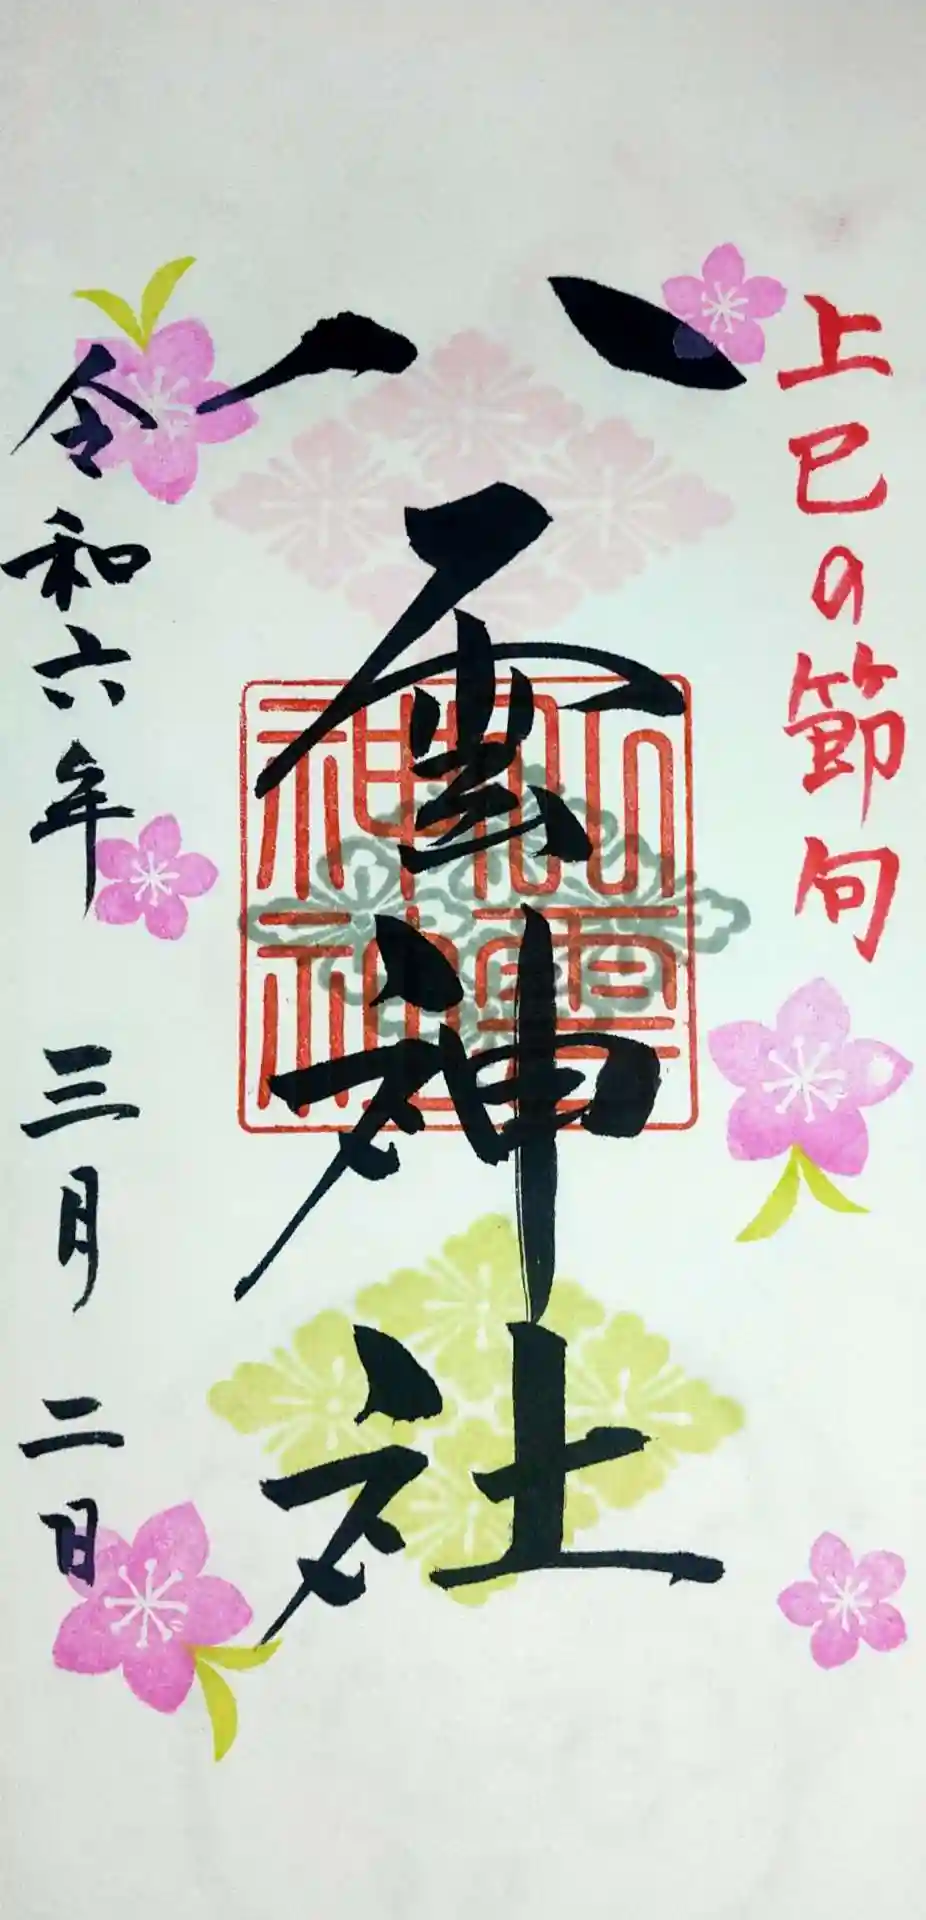 上巳の節句
八雲神社
八雲神社
令和六年 三月 二日